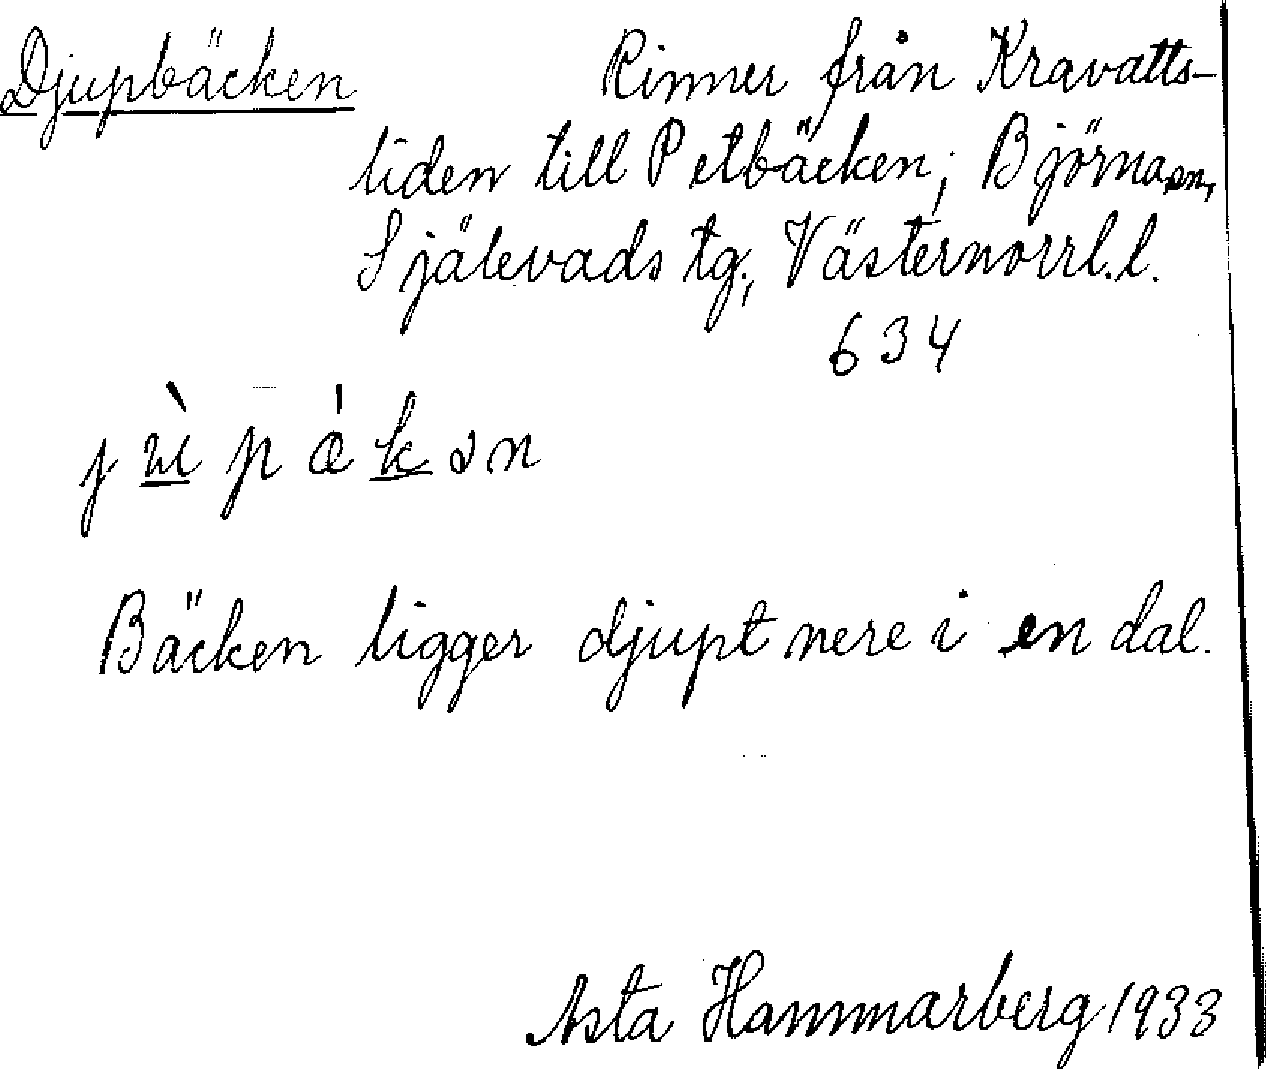 Djupbäcken Rinner från Kravatts-
liden till Petbäcken, Björna sn,
Själevads tg, Västernorrl. l.
634
Bäcken ligger djupt nere i en dal.
Asta Hammarberg 1933